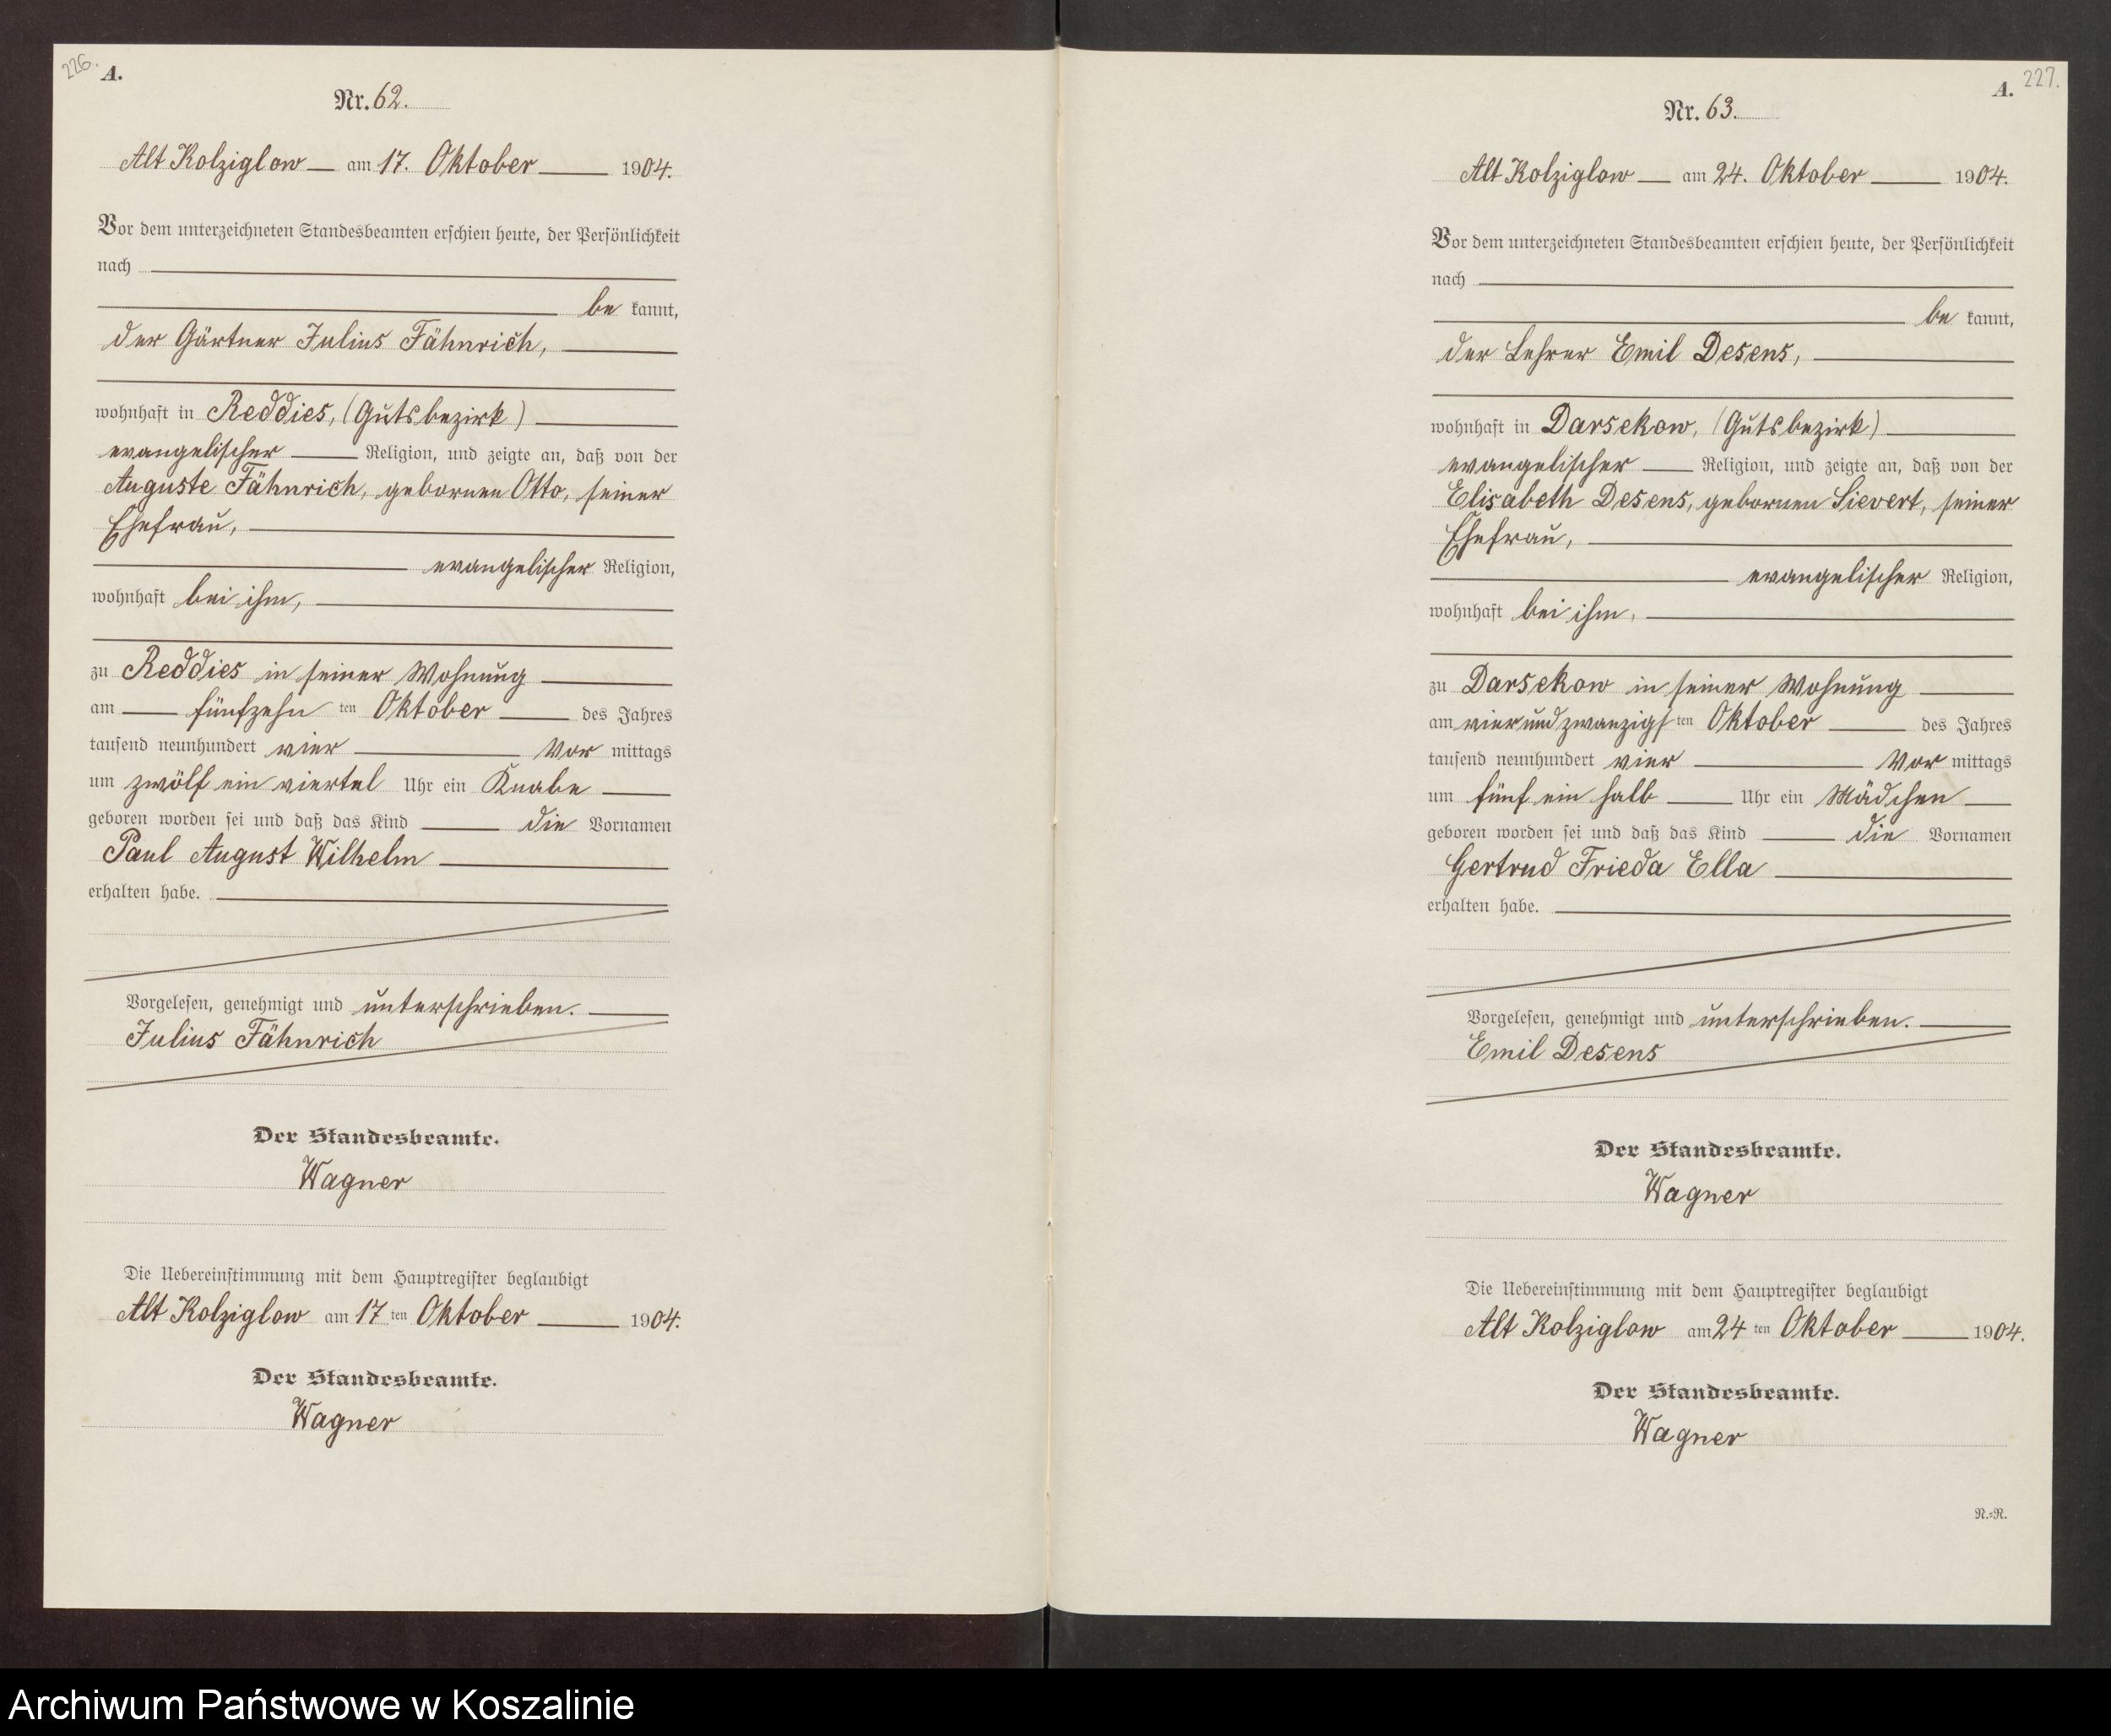 226.
A.
Nr. 62.
Alt Kolziglow am 17. Oktober 1904.
Vor dem unterzeichneten Standesbeamten erschien heute, der Persönlichkeit
nach
be kannt,
der Gärtner Julius Fähnrich,
wohnhaft in Reddies, (Gutsbezirk)
evangelischer Religion, und zeigte an, daß von der
Auguste Fähnrich, gebornen Otto, seiner
Ehefrau,
evangelischer Religion,
wohnhaft bei ihm,
zu Reddies in seiner Wohnung
am fünfzehn ten Oktober des Jahres
tausend neunhundert vier Vor mittags
um zwölf ein viertel Uhr ein Knabe
geboren worden sei und daß das Kind die Vornamen
Paul August Wilhelm
erhalten habe.
Vorgelesen, genehmigt und unterschrieben.
Julius Fähnrich
Der Standesbeamte.
Wagner
Die Uebereinstimmung mit dem Hauptregister beglaubigt
Alt Kolziglow am 17 ten Oktober 1904.
Der Standesbeamte.
Wagner
A.
227.
Nr. 63.
Alt Kolziglow am 24. Oktober 1904.
Vor dem unterzeichneten Standesbeamten erschien heute, der Persönlichkeit
nach
be kannt,
der Lehrer Emil Desens,
wohnhaft in Darsekow, (Gutsbezirk)
evangelischer Religion, und zeigte an, daß von der
Elisabeth Desens, gebornen Sievert, seiner
Ehefrau,
evangelischer Religion,
wohnhaft bei ihm,
zu Darsekow in seiner Wohnung
am vierundzwanzigs ten Oktober des Jahres
tausend neunhundert vier Vor mittags
um fünf ein halb Uhr ein Mädchen
geboren worden sei und daß das Kind die Vornamen
Gertrud Frieda Ella
erhalten habe.
Vorgelesen, genehmigt und unterschrieben.
Emil Desens
Der Standesbeamte.
Wagner
Die Uebereinstimmung mit dem Hauptregister beglaubigt
Alt Kolziglow am 24 ten Oktober 1904.
Der Standesbeamte.
Wagner
N.=R.
Archiwum Państwowe w Koszalinie